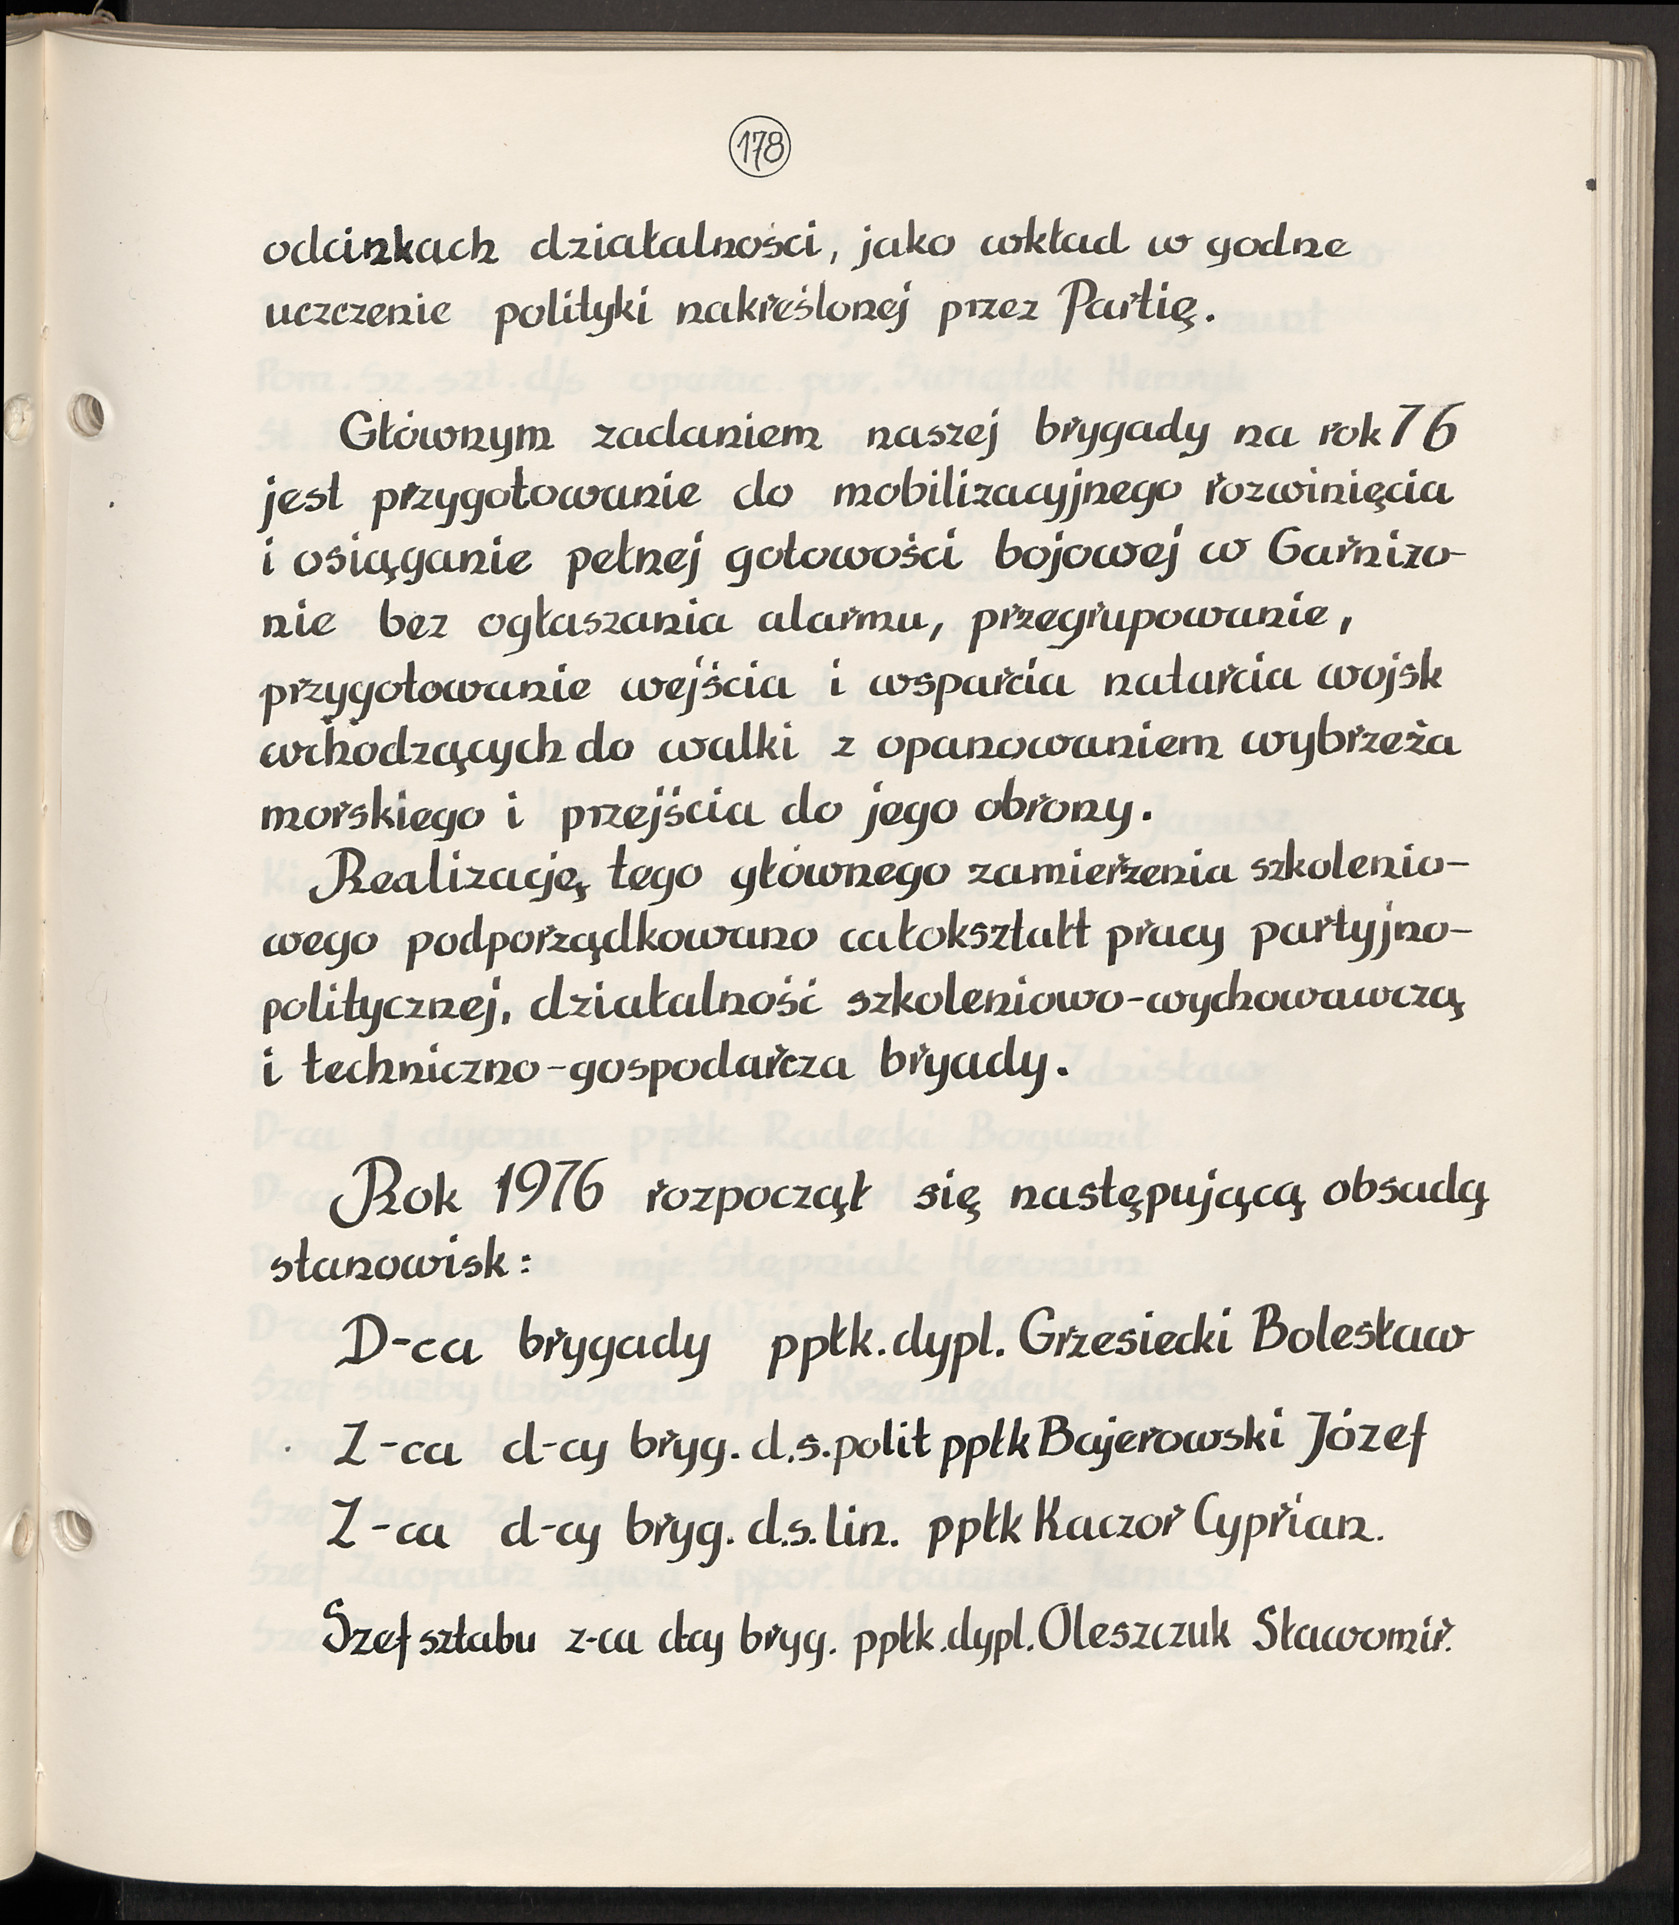 178
odcinkach działalności, jako wkład w godne
uczczenie polityki nakreślonej przez Partię.
Głównym zadaniem naszej brygady na rok 76
jest przygotowanie do mobilizacyjnego rozwinięcia
i osiąganie pełnej gotowości bojowej w Garnizo-
nie bez ogłaszania alarmu, przegrupowanie,
przygotowanie wejścia i wsparcia natarcia wojsk
wchodzących do walki z opanowaniem wybrzeża
morskiego i przejścia do jego obrony.
Realizację tego głównego zamierzenia szkolenio-
wego podporządkowano całokształt pracy partyjno-
politycznej, działalność szkoleniowo-wychowawczą
i techniczno-gospodarcza bryady.
Rok 1976 rozpoczął się następującą obsadą
stanowisk:
D-ca brygady ppłk.dypl. Grzesiecki Bolesław
Z-ca d-cy bryg. d.s.polit ppłk Bajerowski Józef
Z-ca d-cy bryg. d.s. lin. ppłk Kaczor Cyprian.
Szef sztabu z-ca d-cy bryg. ppłk.dypl. Oleszczuk Sławomir.